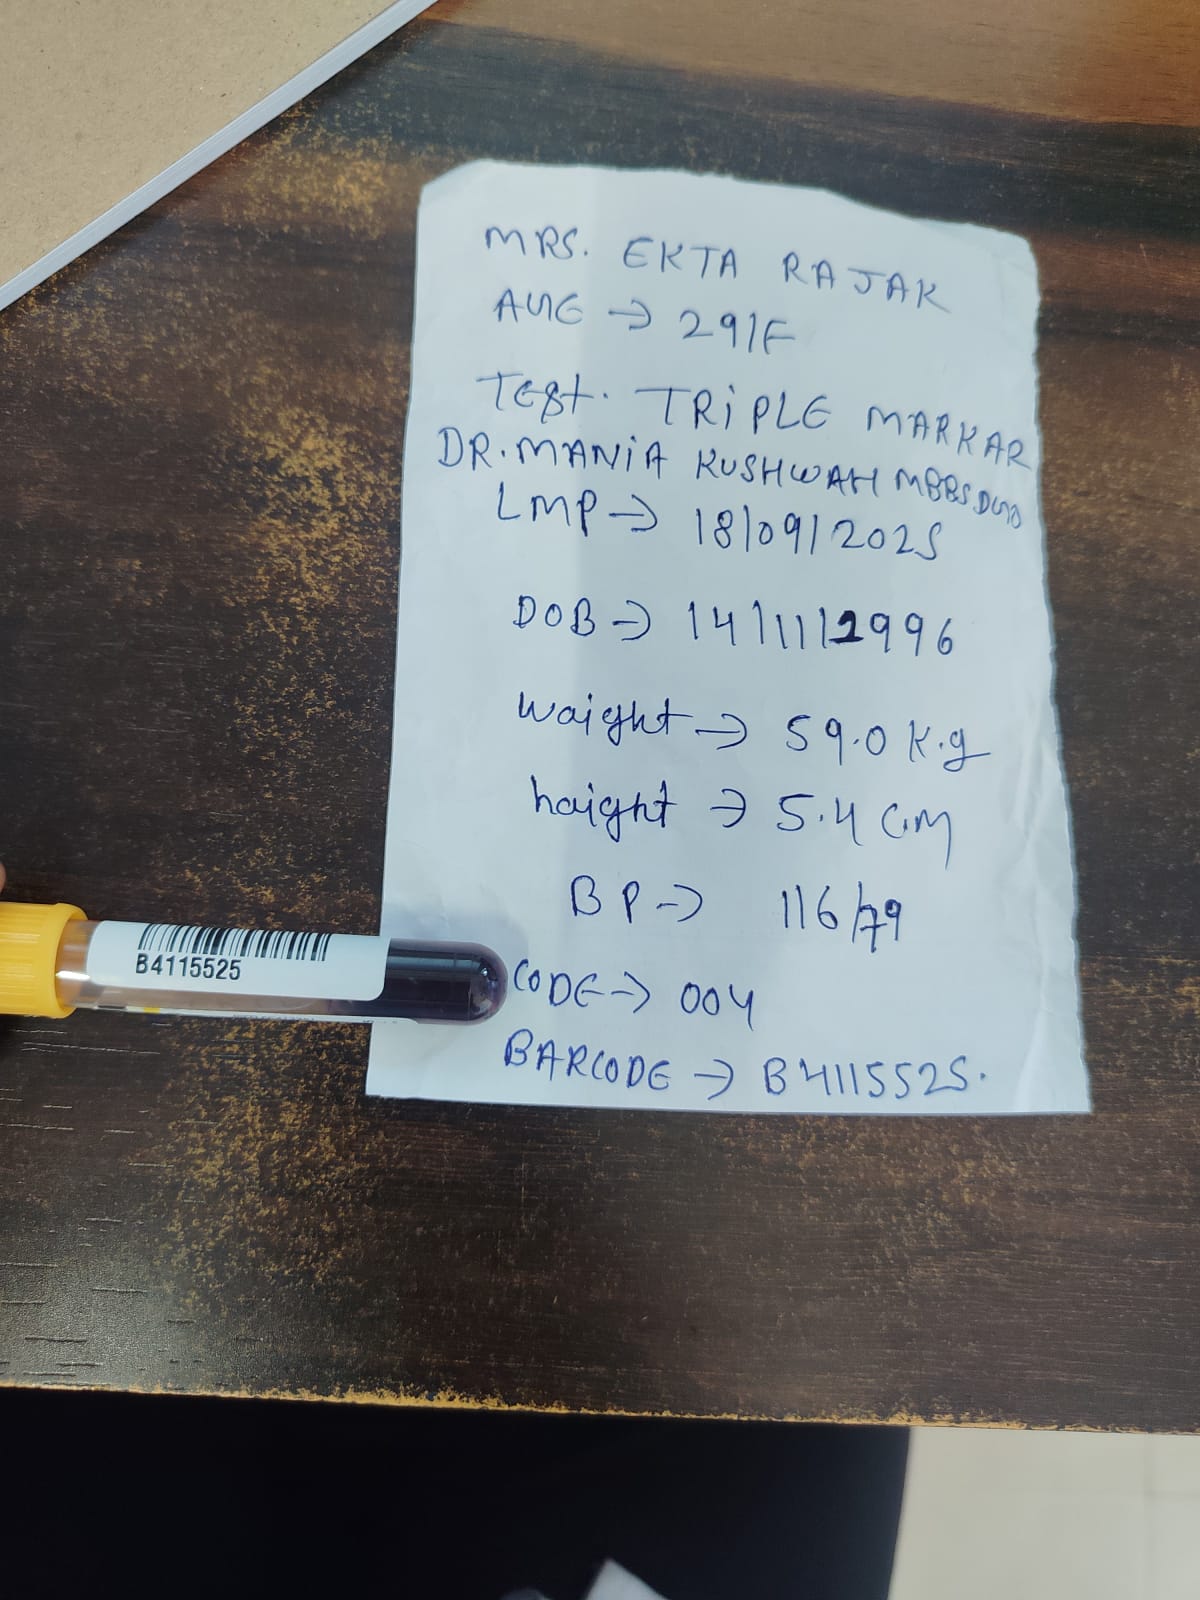 MRS. EKTA RAJAK
AUE → 29/F
TEst. TRiPLE MARKAR
DR. MANiA KUSHWAH MBBS DGO
LMP → 18/09/2025
DOB → 14/11/1996
Waight → 59.0 K.g
haight → 5.4 C.M
BP → 116/79
CODE → 004
BARCODE → B4115525.
B4115525